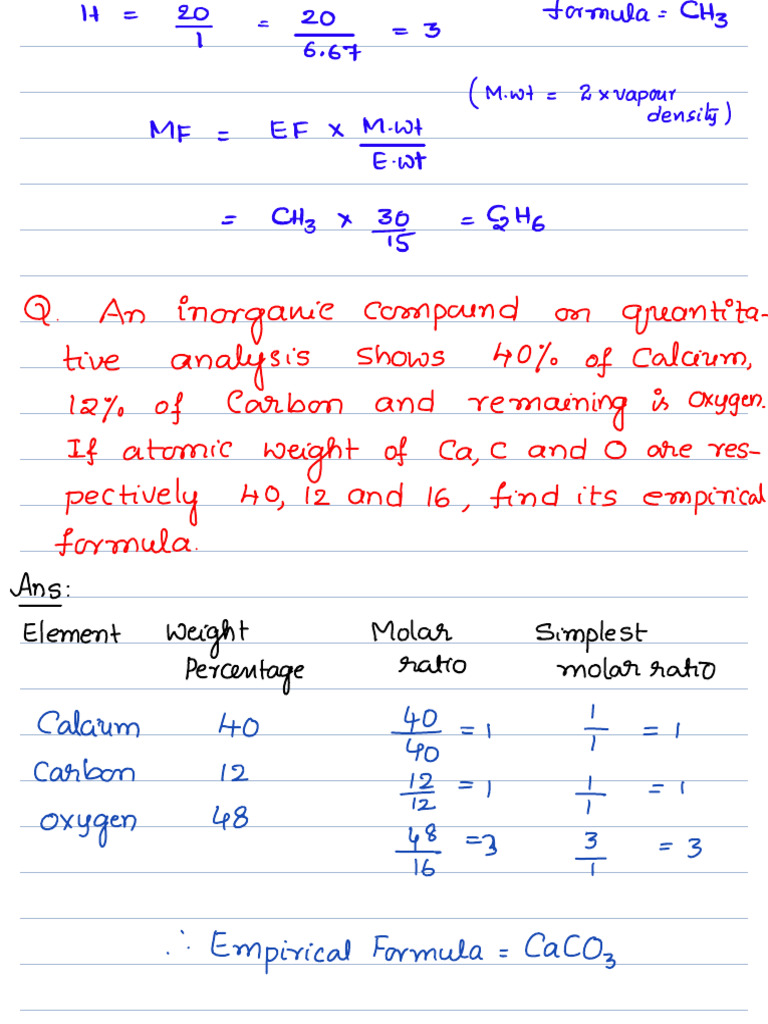 H = 20/1 = 20/6.67 = 3 formula = CH₃
(M.wt = 2 x vapour density)
MF = EF x M.wt/E.wt
= CH₃ x 30/15 = C₂H₆
Q. An inorganic compound on quantita-
tive analysis shows 40% of Calcium,
12% of Carbon and remaining is oxygen.
If atomic weight of Ca, C and O are res-
pectively 40, 12 and 16, find its empirical
formula.
Ans:
Element Weight Percentage Molar ratio Simplest molar ratio
Calcium 40 40/40 = 1 1/1 = 1
Carbon 12 12/12 = 1 1/1 = 1
Oxygen 48 48/16 = 3 3/1 = 3
∴ Empirical Formula = CaCO₃